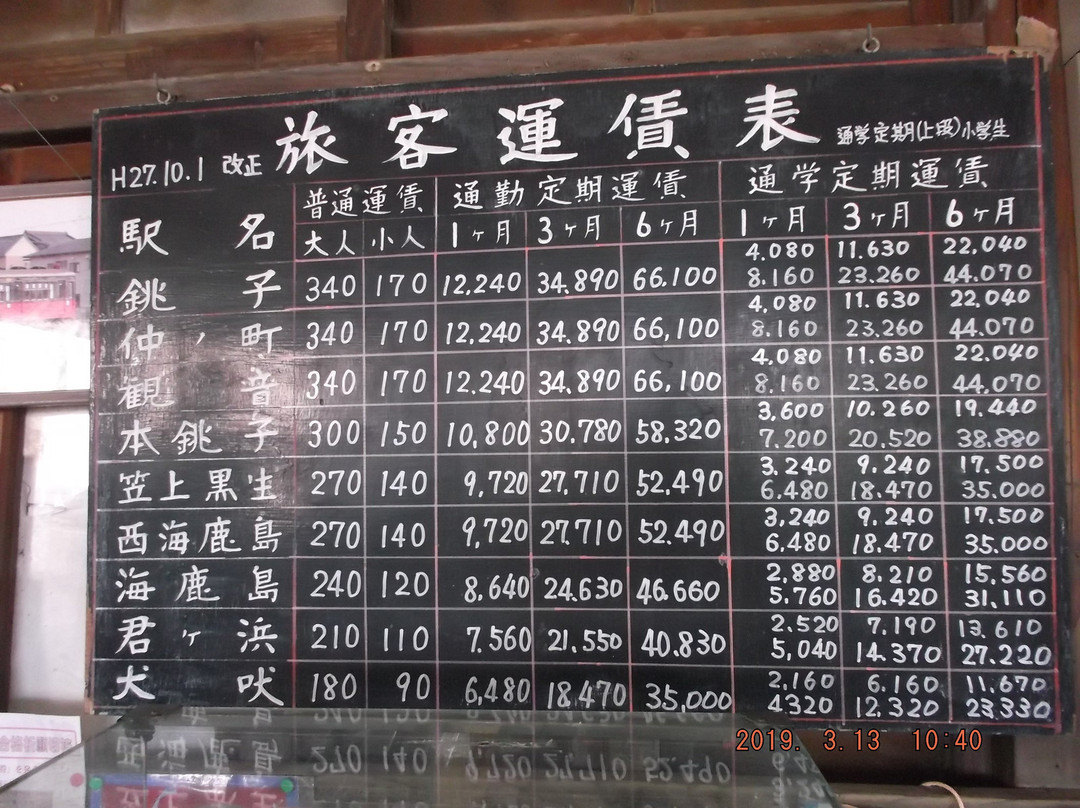 旅客運賃表 通学定期(上段)小学生
H27.10.1 改正
駅名 普通運賃 通勤定期運賃 通学定期運賃
大人 小人 1ヶ月 3ヶ月 6ヶ月 1ヶ月 3ヶ月 6ヶ月
4.080 11.630 22.040
銚子 340 170 12,240 34.890 66.100 8.160 23.260 44.070
4,080 11.630 22,040
仲ノ町 340 170 12,240 34.890 66,100 8.160 23.260 44.070
4,080 11.630 22.040
観音 340 170 12.240 34.890 66,100 8.160 23.260 44.070
3,600 10.260 19.440
本銚子 300 150 10,800 30.780 58,320 7.200 20.520 38.880
3.240 9.240 17.500
笠上黒生 270 140 9,720 27,710 52,490 6.480 18.470 35.000
3,240 9.240 17.500
西海鹿島 270 140 9,720 27.710 52.490 6,480 18.470 35.000
2,880 8.210 15.560
海鹿島 240 120 8,640 24.630 46.660 5.760 16.420 31.110
2.520 7.190 13.610
君ヶ浜 210 110 7.560 21.550 40.830 5,040 14.370 27.220
2,160 6.160 11.670
犬吠 180 90 6,480 18.470 35,000 4320 12,320 23.330
2019. 3.13 10:40